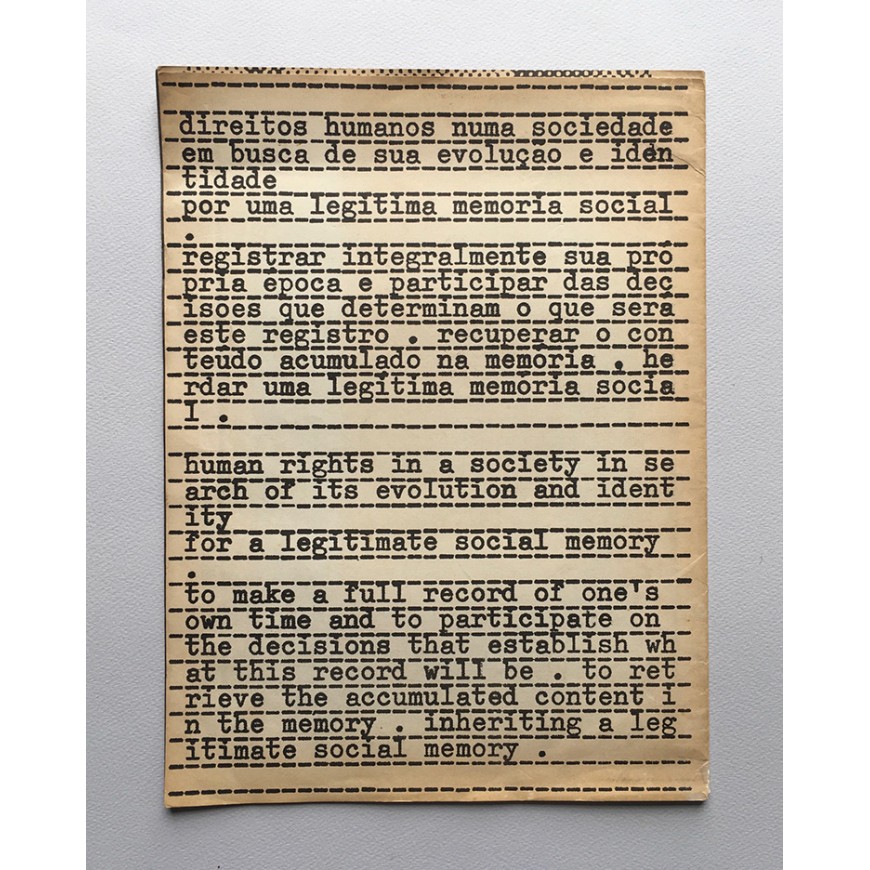 direitos humanos numa sociedade
em busca de sua evolução e iden
tidade
por uma legitima memoria social
.
registrar integralmente sua pró
pria época e participar das dec
isões que determinam o que será
este registro . recuperar o con
teúdo acumulado na memória . he
rdar uma legítima memória socia
l .
human rights in a society in se
arch of its evolution and ident
ity
for a legitimate social memory
.
to make a full record of one's
own time and to participate on
the decisions that establish wh
at this record will be . to ret
rieve the accumulated content i
n the memory . inheriting a leg
itimate social memory .